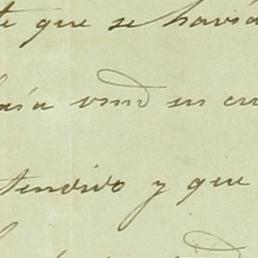 te que se havia
aia vmd en cu
tendido y que